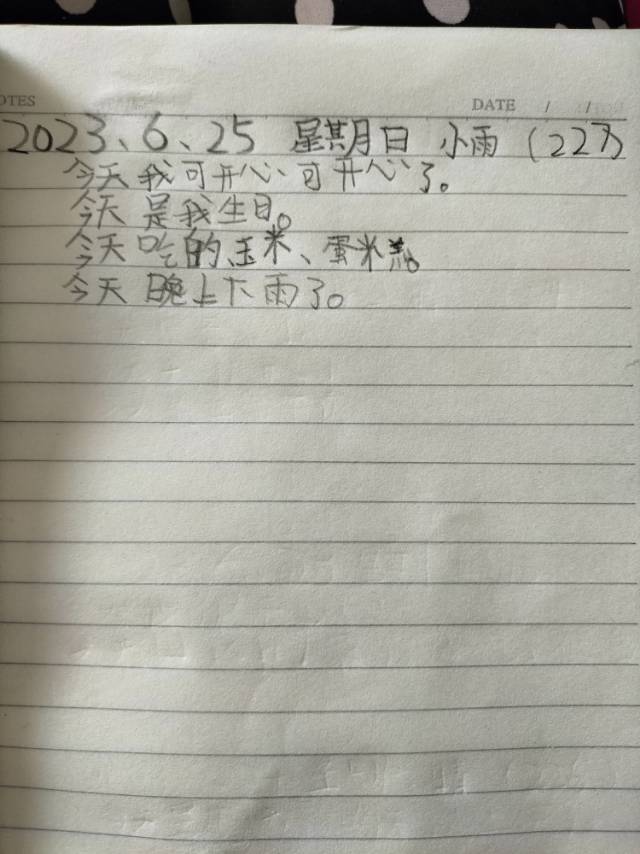 NOTES
DATE / /
2023、6、25 星期日 小雨（227）
今天我可开心可开心了。
今天是我生日。
今天吃的玉米、蛋米羔。
今天晚上下雨了。